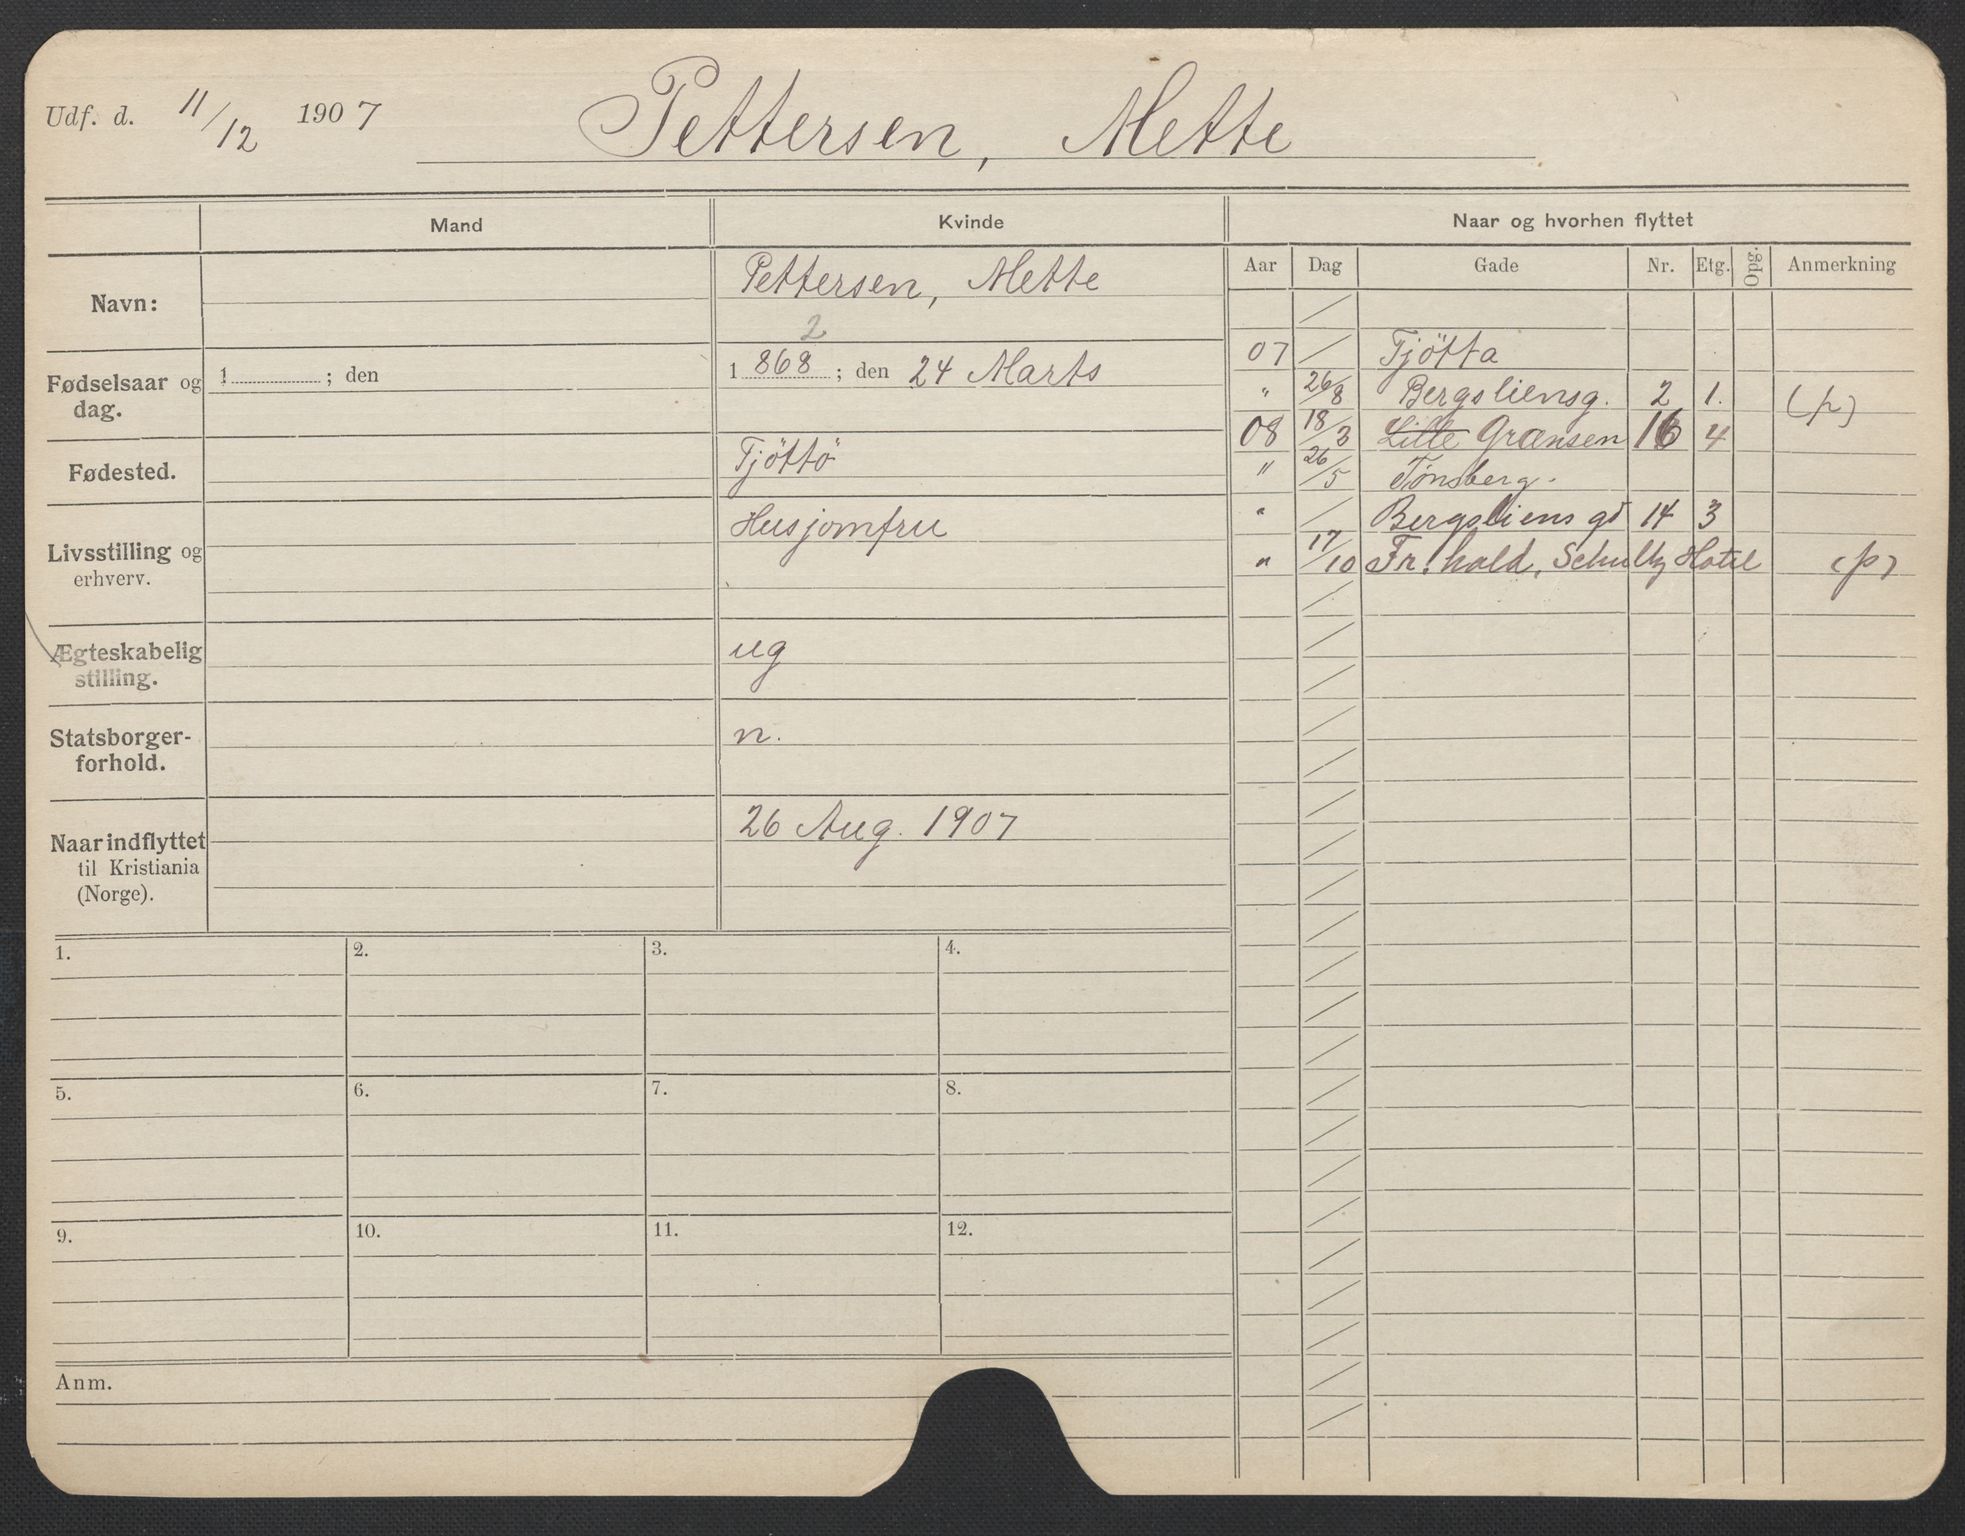 Udf. d. 11/12 1907
Pettersen, Mette
Mand
Kvinde
Naar og hvorhen flyttet
Aar Dag Gade Nr. Etg. Opg. Anmerkning
Navn:
Pettersen, Mette
2
Fødselsaar og dag.
1 ; den
1 868 ; den 24 Marts
Fødested.
Tjöttö
Livsstilling og erhverv.
Husjomfru
Ægteskabelig stilling.
ug
Statsborger-
forhold.
n.
Naar indflyttet
til Kristiania
(Norge).
26 Aug. 1907
07 Tjötta
" 26/8 Bergsliensg. 2 1. (p)
08 18/3 Lille Grænsen 16 4
" 26/5 Tønsberg.
" Bergsliens gd 14 3
" 17/10 Fr.hald, Schultz Hotel (p)
1. 2. 3. 4.
5. 6. 7. 8.
9. 10. 11. 12.
Anm.